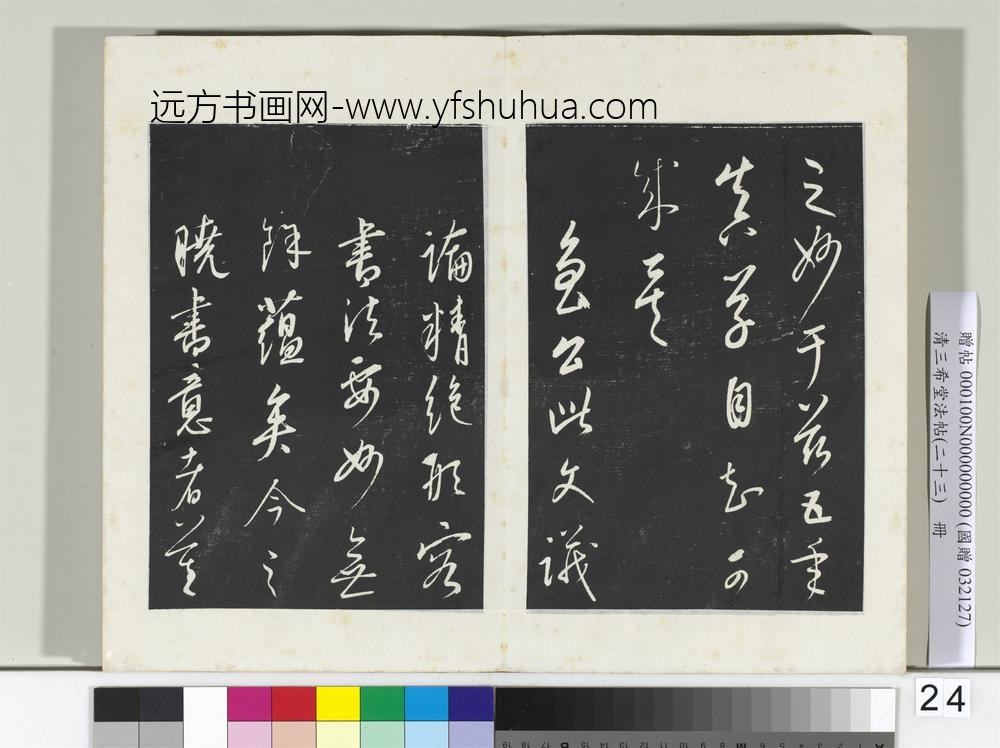 远方书画网-www.yfshuhua.com
之妙于茲五年
真草自知可
成矣
魯公此文議
論精絕形容
書法要妙無
餘蘊矣今之
曉書意者莫
贈帖 000100N000000000 (國贈 032127)
清三希堂法帖(二十三) 冊
24